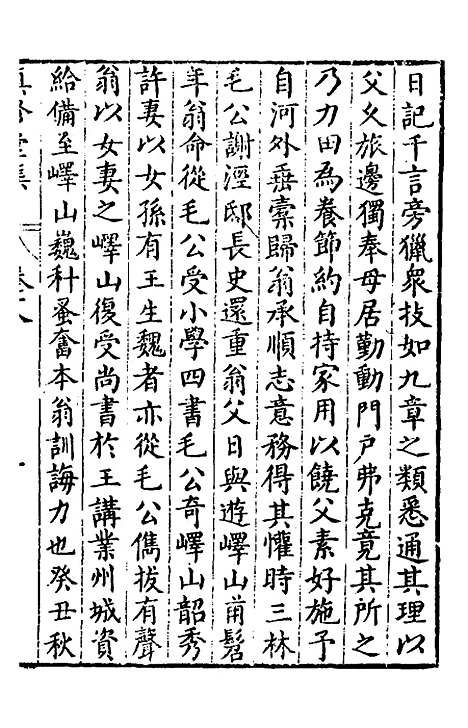 日記千言旁獵衆技如九章之類悉通其理以
父久旅邊獨奉母居勤動門戶弗克竟其所之
乃力田為養節約自持家用以饒父素好施予
自河外垂橐歸翁承順志意務得其懽時三林
毛公謝涇邸長史還重翁父日與遊嶧山甫髫
年翁命從毛公受小學四書毛公奇嶧山韶秀
許妻以女孫有王生魏者亦從毛公儁拔有聲
翁以女妻之嶧山復受尚書於王講業州城資
給備至嶧山巍科蚤奮本翁訓誨力也癸丑秋